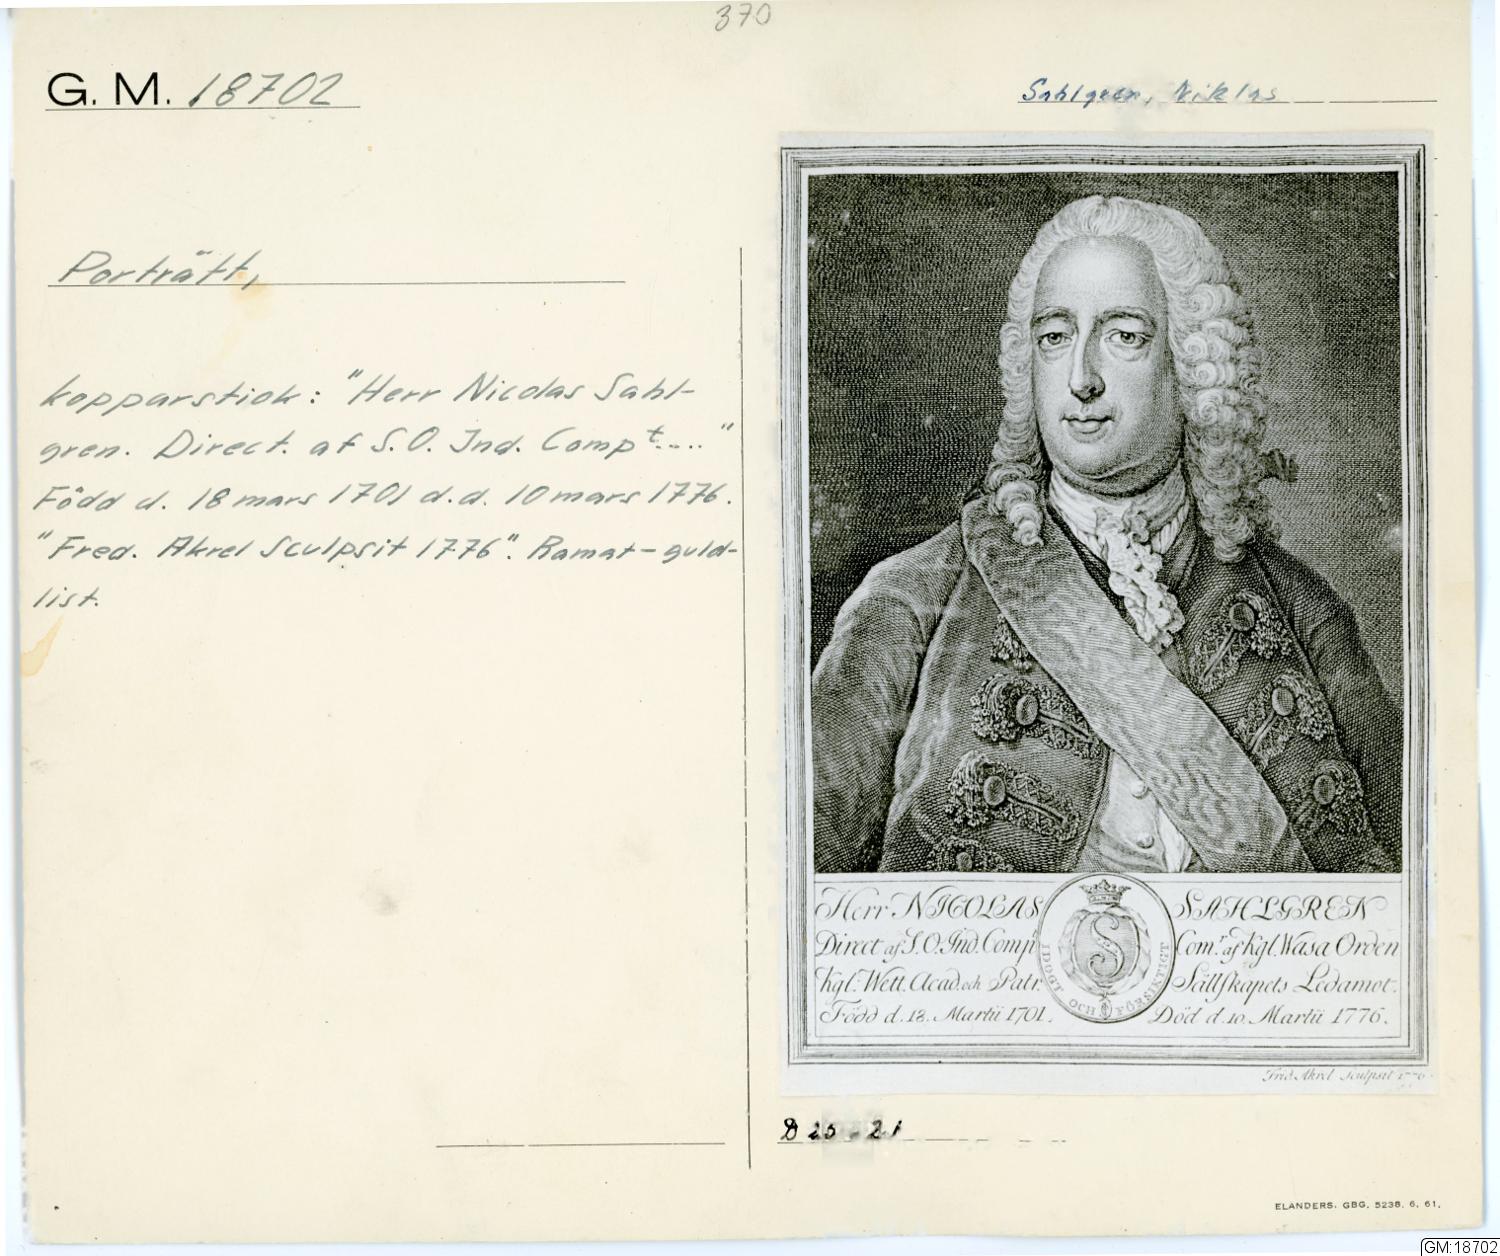 370
G. M. 18702
Sahlgren, Niklas
Porträtt,
kopparstick: "Herr Nicolas Sahl-
gren. Direct. af S.O. Ind. Compt...."
Född d. 18 mars 1701 d.d. 10 mars 1776.
"Fred. Akrel Sculpsit 1776". Ramat-guld-
list.
Herr NICOLAS SAHLGREN
Direct af S.O. Ind. Compt Com.r af Kgl. Wasa Orden
Kgl. Wett. Acad. och Patr. Sällskapets Ledamot.
Född d. 18. Martii 1701. Död d. 10. Martii 1776.
IDOGT OCH FÖRSIKTIGT
S
Frid. Akrel Sculpsit 1776.
D 25 - 21
ELANDERS. GBG. 5238. 6. 61.
GM:18702